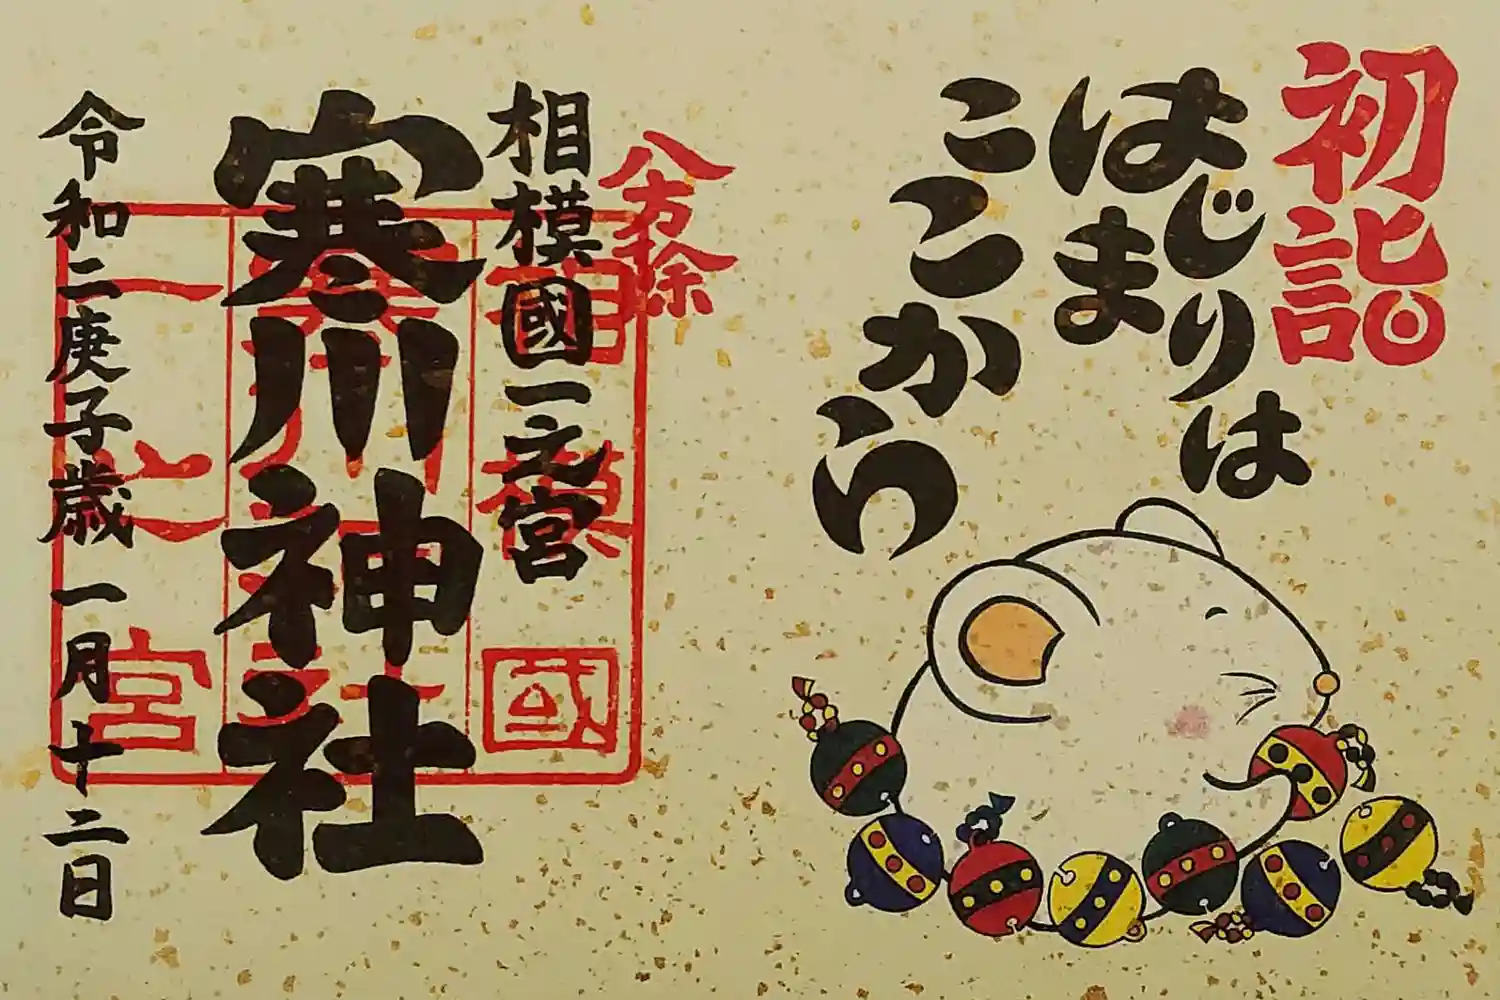 初詣
はじりは
はま
ここから
八方除
相模國一之宮
寒川神社
令和二庚子歳一月十二日
相模國
寒川神社
一之宮